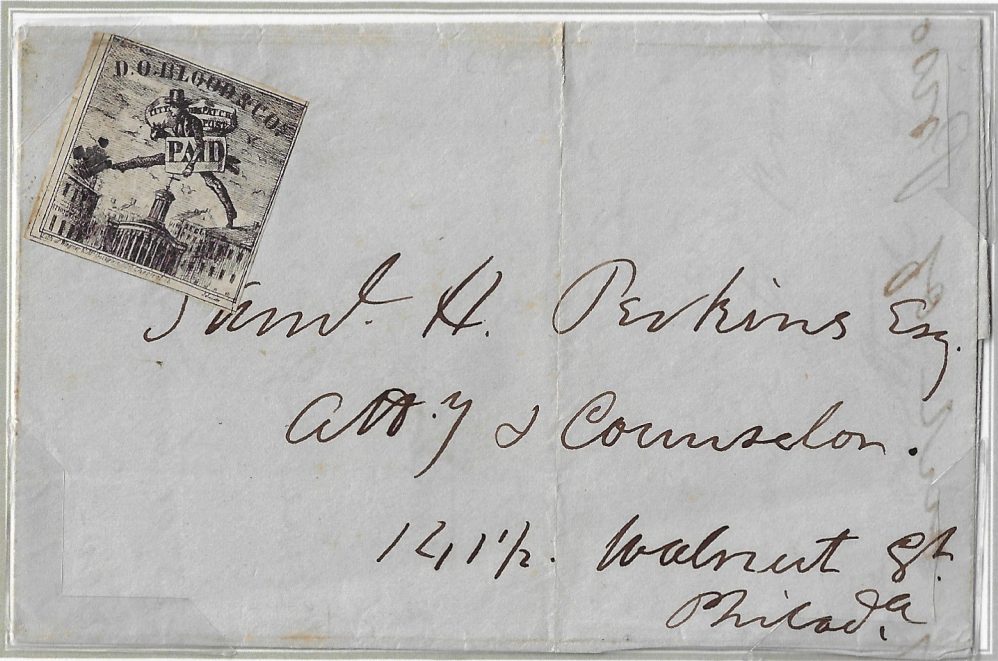 D.O. BLOOD & CO.
CITY DESPATCH
POST
PAID
Saml. H. Perkins Esq.
Att.y & Counselor.
141 1/2. Walnut St.
Philada.